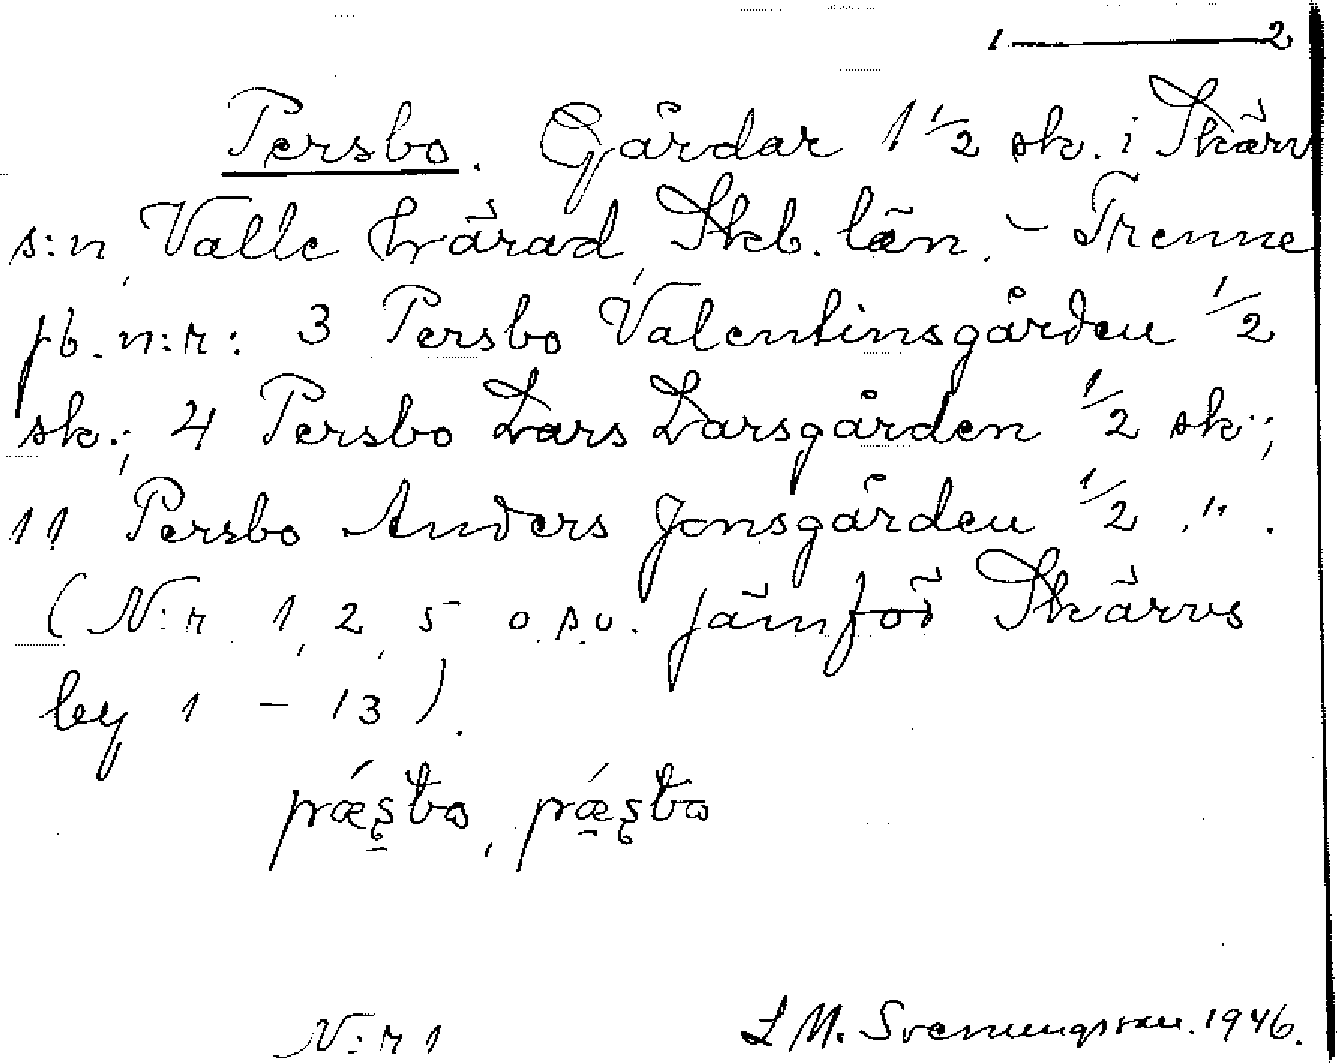 1 — 2
Persbo. Gårdar 1 1/2 sk. i Skärv
s:n, Valle härad, Skb. län. - Trenne
jb. n:r: 3 Persbo Valentinsgården 1/2
sk.; 4 Persbo Lars Larsgården 1/2 sk.;
11 Persbo Anders Jonsgården 1/2 ".
(N:r 1, 2, 5 o.s.v. jämför Skärvs
by 1 - 13).
N:r 1
L M. Svenungsson. 1946.